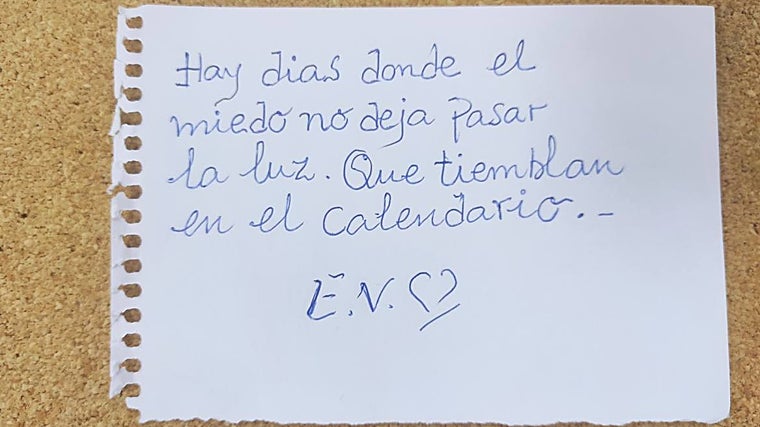 Hay dias donde el
miedo no deja pasar
la luz. Que tiemblan
en el calendario.-
E.V.♡